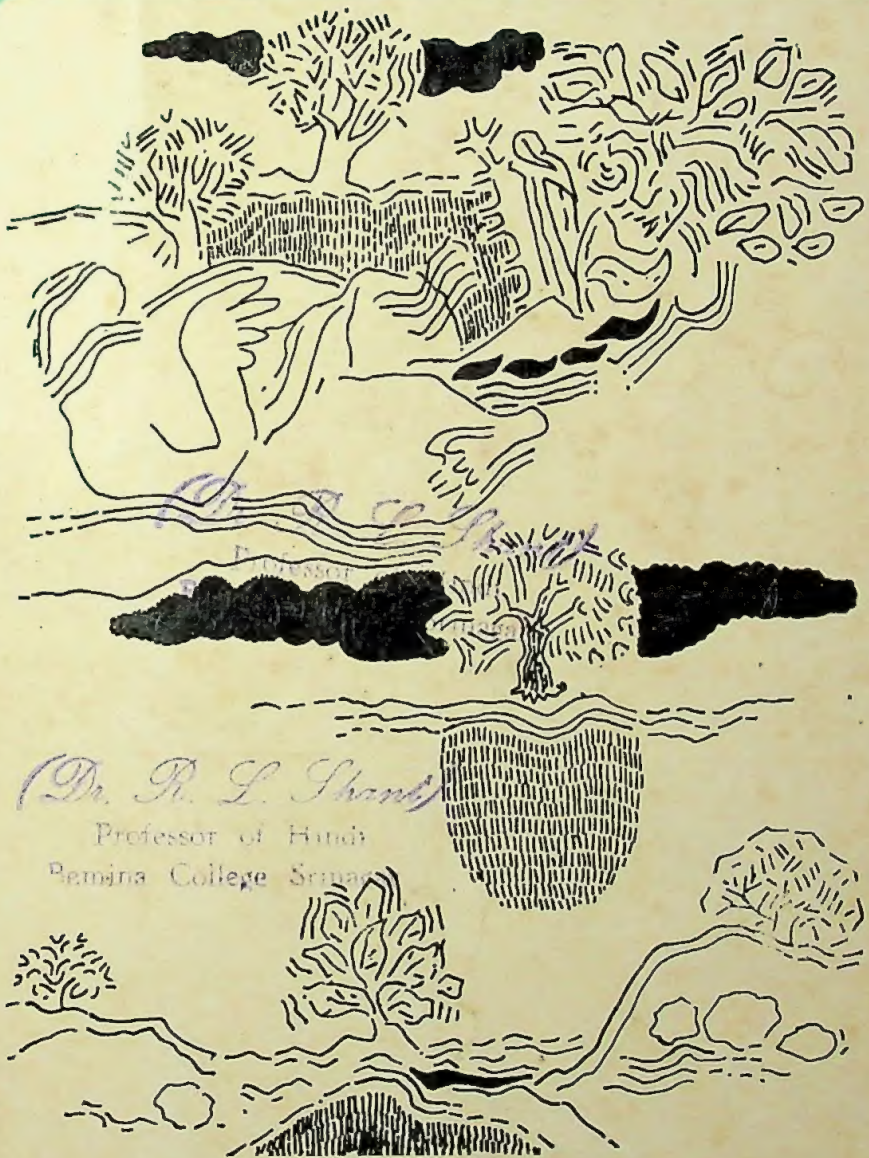 (Dr. R. L. Sha
Professor
(Dr. R. L. Shant)
Professor of Hindi
Bemina College Srinag